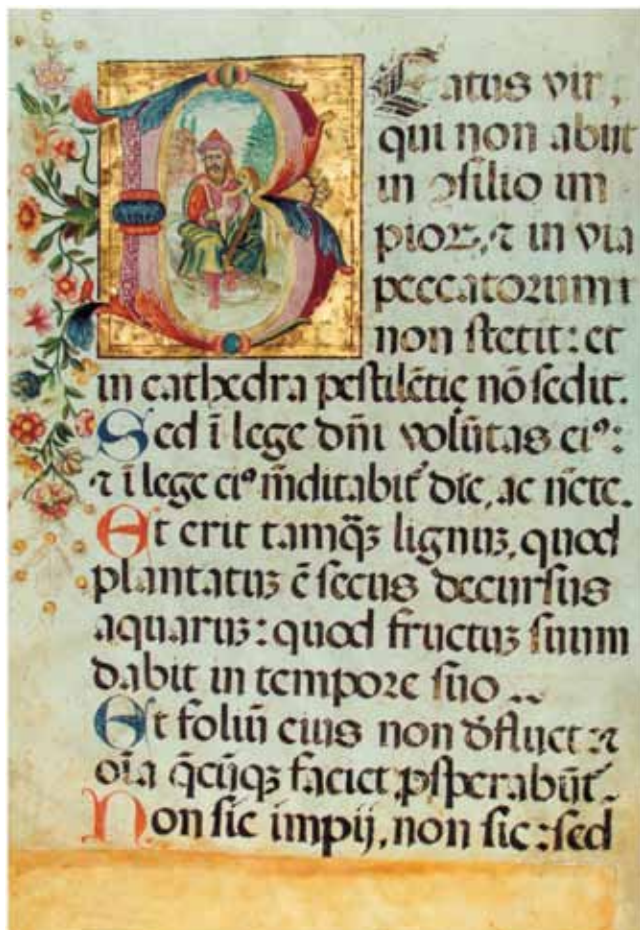 Beatus vir,
qui non abijt
in ɔsilio im
pioꝝ, ⁊ in via
peccatorum
non stetit: et
in cathedra pestilẽtię nõ sedit.
Sed ĩ lege dñi volũtas eiꝰ:
⁊ ĩ lege eiꝰ mẽditabit᷑ die, ac nc̃te.
Et erit tamq̃ꝫ lignuꝫ, quod
plantatuꝫ ẽ secus decursus
aquaruꝫ: quod fructuꝫ suum
dabit in tempore suo..
Et foliũ eius non dẽfluet: ⁊
oĩa q̃cũqꝫ faciet, ꝓsperabũt᷑.
Non sic impij, non sic: sed